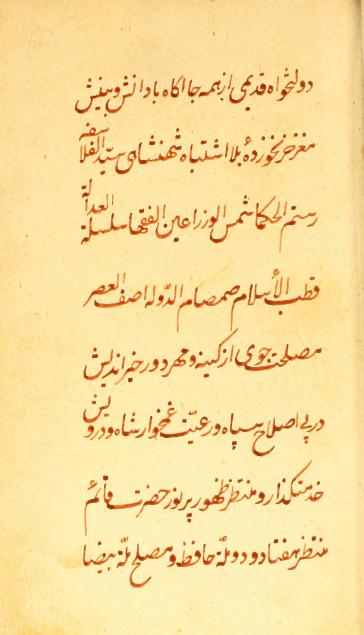 دولتخواه قدیمی از همه جا اکاه با دانش و بینش
مغز خر نخورده بلا اشتباه شهنشاهی سید الفلاسفه
رستم الحکما شمس الوزرا عین الفقها سلسلة العدالة
قطب الأسلام صمصام الدّوله اصف العصر
مصلحت جوی از کینه و مهر دور خیراندیش
در پی اصلاح سپاه و رعیّت غمخوار شاه و درویش
خدمتکذار و منتظر ظهور پر نور حضرت قائم
منتظر هفتاد و دو ملّة حافظ و مصلح ملّة بیضا